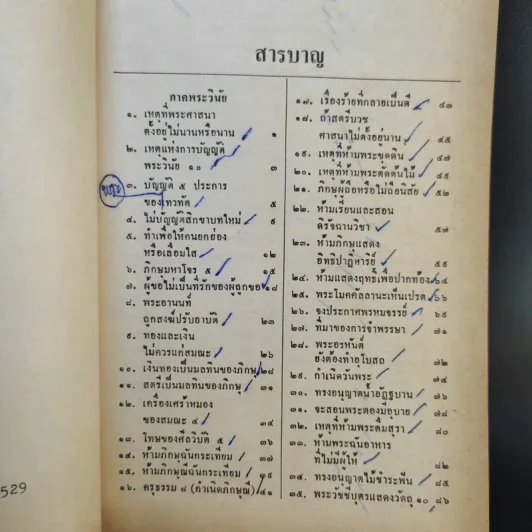 สารบาญ
ภาคพระวินัย
๑. เหตุที่พระศาสนา
ตั้งอยู่ไม่นานหรือนาน ๑
๒. เหตุแห่งการบัญญัติ
พระวินัย ๑๐ ๓
พระ
๓. บัญญัติ ๕ ประการ
ของเทวทัต ๕
๔. ไม่บัญญัติสิกขาบทใหม่ ๙
๕. ทำเพื่อให้คนยกย่อง
หรือเลื่อมใส ๑๒
๖. ภิกษุมหาโจร ๕ ๑๕
๗. ผู้ขอไม่เป็นที่รักของผู้ถูกขอ ๑๘
๘. พระอานนท์
ถูกสงฆ์ปรับอาบัติ ๒๓
๙. ทองและเงิน
ไม่ควรแก่สมณะ ๒๖
๑๐. เงินทองเป็นมลทินของภิกษุ ๒๘
๑๑. สตรีเป็นมลทินของภิกษุ ๓๑
๑๒. เครื่องเศร้าหมอง
ของสมณะ ๔ ๓๔
๑๓. โทษของศีลวิบัติ ๕ ๓๖
๑๔. ห้ามภิกษุฉันกระเทียม ๓๗
๑๕. ห้ามภิกษุณีฉันกระเทียม ๓๙
๑๖. ครุธรรม ๘ (กำเนิดภิกษุณี) ๔๑
๑๗. เรื่องร้ายที่กลายเป็นดี ๔๓
๑๘. ถ้าสตรีบวช
ศาสนาไม่ตั้งอยู่นาน ๔๕
๑๙. เหตุที่ห้ามพระขุดดิน ๔๗
๒๐. เหตุที่ห้ามพระตัดต้นไม้
๒๑. ภิกษุผู้ถือหรือไม่ถือนิสัย
๒๒. ห้ามเรียนและสอน
ดิรัจฉานวิชา ๕๗
๒๓. ห้ามภิกษุแสดง
อิทธิปาฏิหาริย์ ๕๙
๒๔. ห้ามแสดงฤทธิ์เพื่อปากท้อง ๖๔
๒๕. พระโมคคัลลานะเห็นเปรต ๖๖
๒๖. จงประกาศพรหมจรรย์ ๖๙
๒๗. ที่มาของการจำพรรษา ๗๑
๒๘. พระอรหันต์
ยังต้องทำอุโบสถ ๗๒
๒๙. กำเนิดวันพระ ๗๔
๓๐. ทรงอนุญาตน้ำอัฏฐบาน ๗๖
๓๑. จะสอนพระต้องมีอุบาย ๗๘
๓๒. เหตุที่ห้ามพระดื่มสุรา ๘๐
๓๓. ห้ามพระฉันอาหาร
ที่ไม่มีผู้ให้ ๘๒
๓๔. ทรงอนุญาตไม้ชำระฟัน ๘๕
๓๕. พระวัชชีบุตรแสดงวัตถุ ๑๐ ๘๖
529